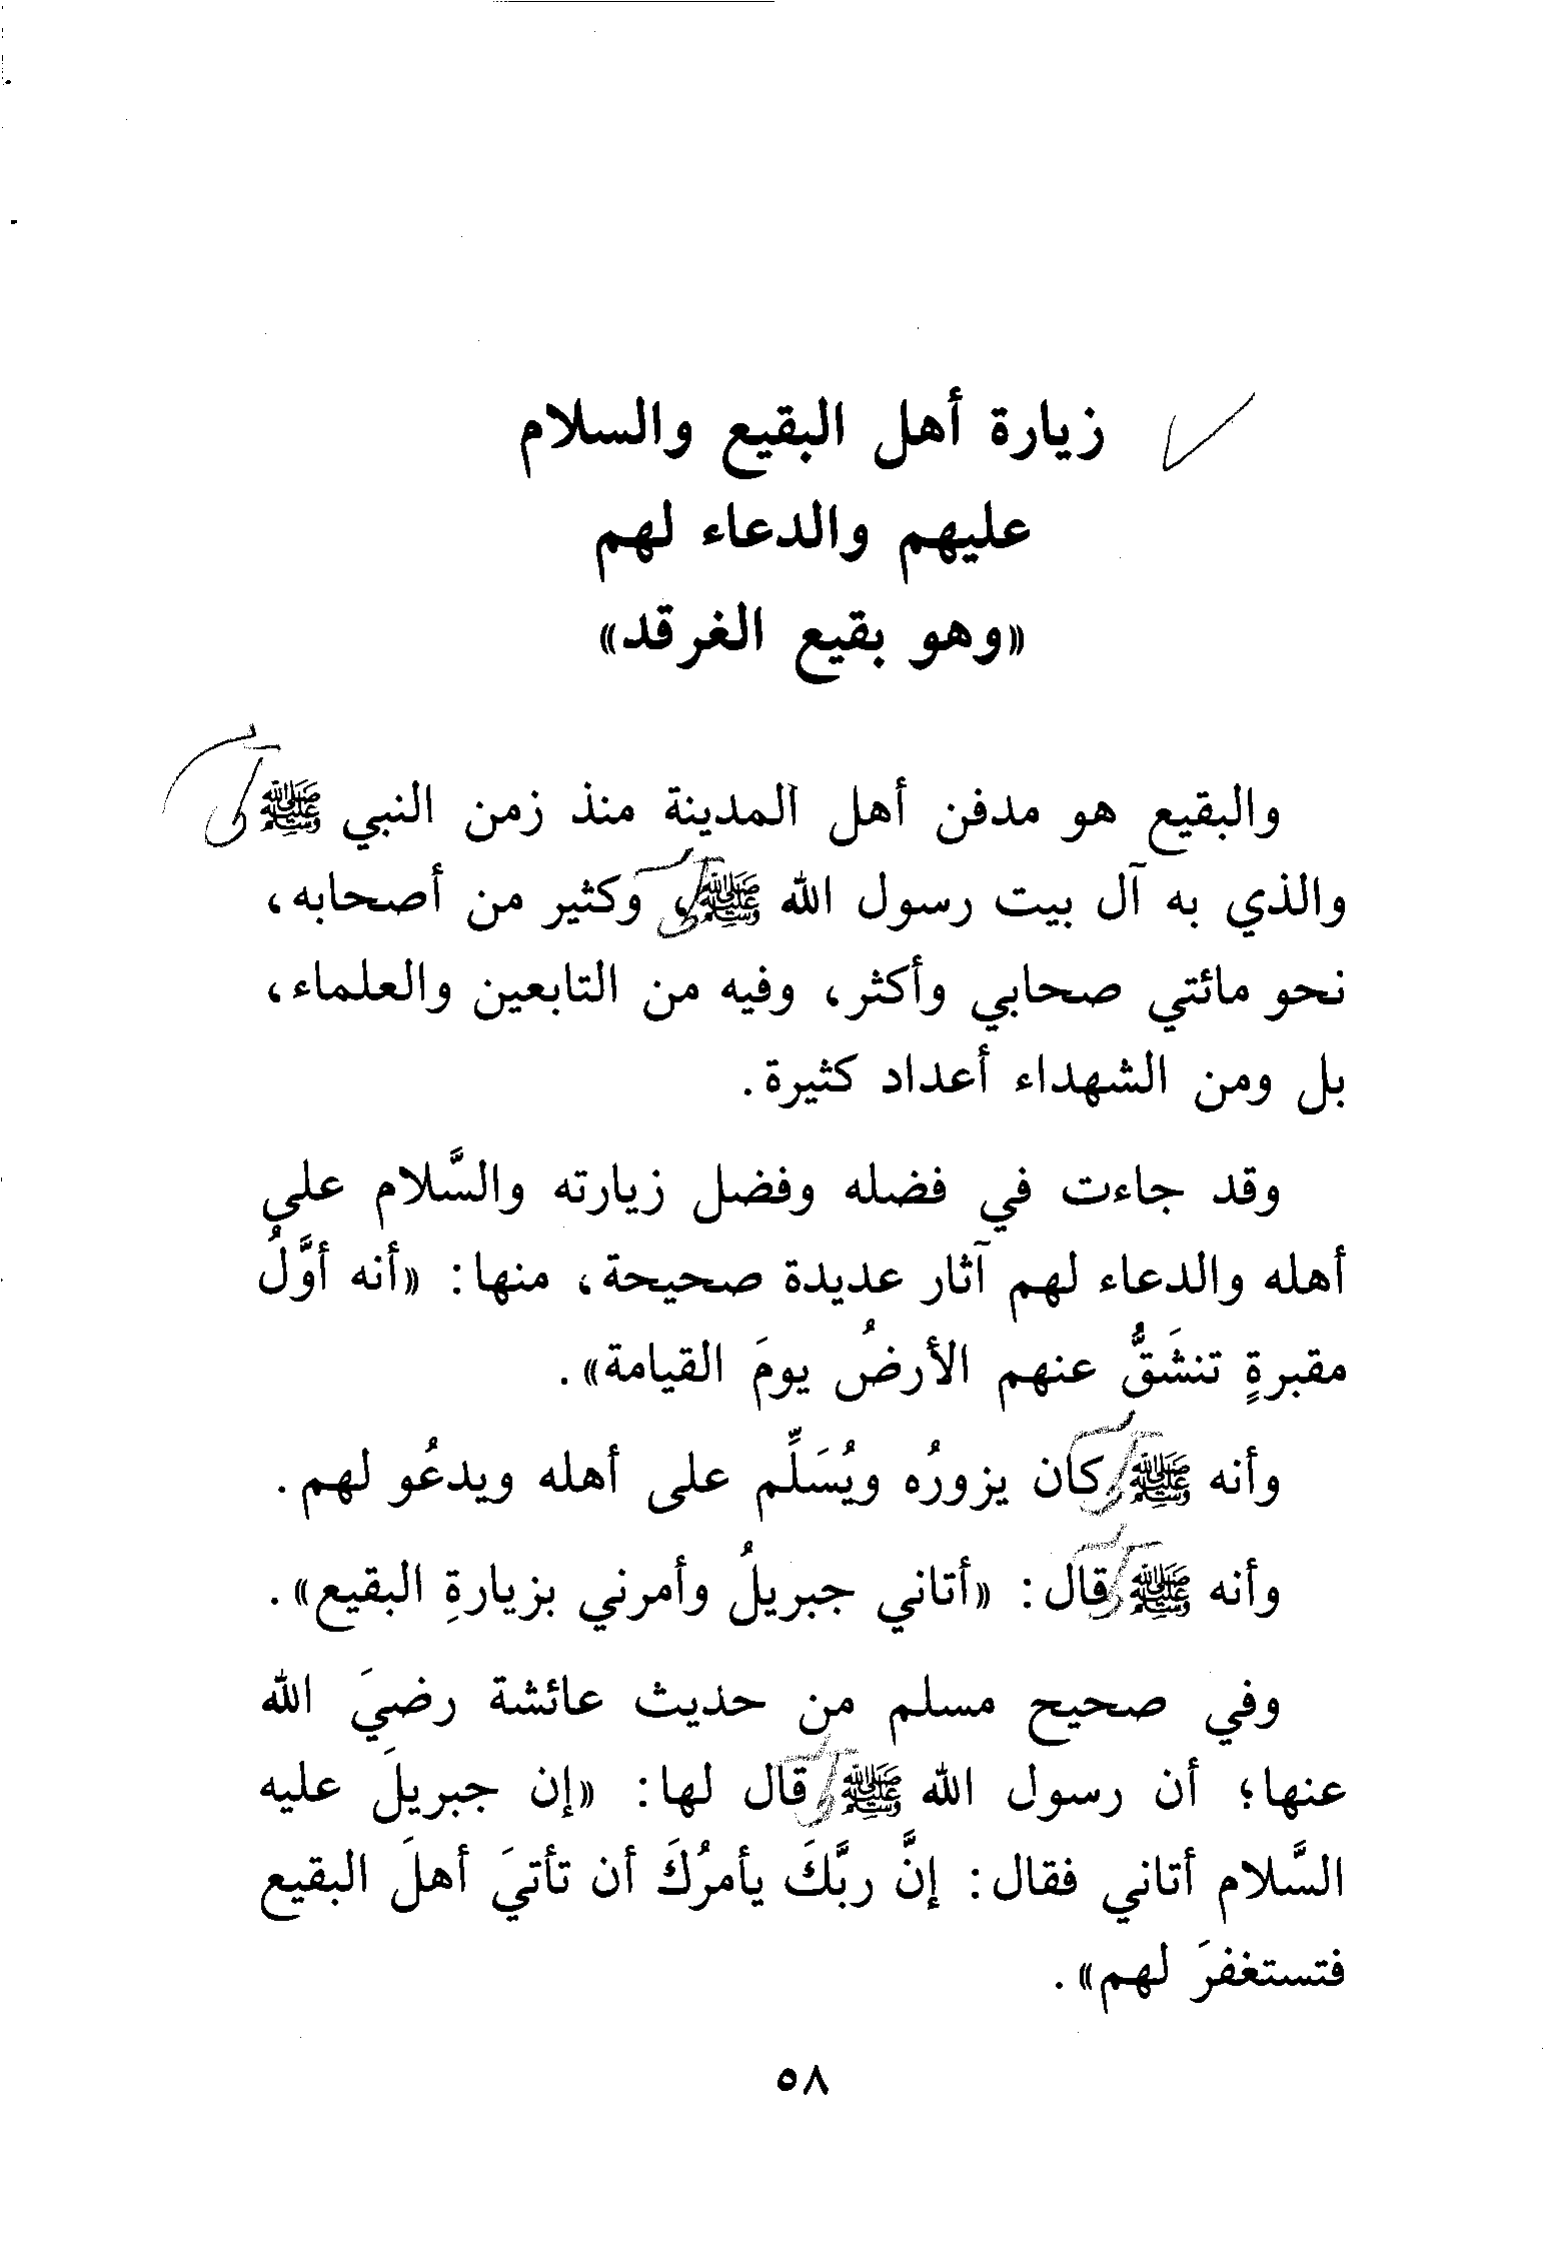 زيارة أهل البقيع والسلام
عليهم والدعاء لهم
«وهو بقيع الغرقد»
والبقيع هو مدفن أهل المدينة منذ زمن النبي ﷺ
والذي به آل بيت رسول الله ﷺ، وكثير من أصحابه،
نحو مائتي صحابي وأكثر، وفيه من التابعين والعلماء،
بل ومن الشهداء أعداد كثيرة.
وقد جاءت في فضله وفضل زيارته والسَّلام على
أهله والدعاء لهم آثار عديدة صحيحة، منها: «أنه أوَّلُ
مقبرةٍ تنشَقُّ عنهم الأرضُ يومَ القيامة».
وأنه ﷺ كان يزورُه ويُسَلِّم على أهله ويدعُو لهم.
وأنه ﷺ قال: «أتاني جبريلُ وأمرني بزيارةِ البقيع».
وفي صحيح مسلم من حديث عائشة رضيَ الله
عنها؛ أن رسول الله ﷺ قال لها: «إن جبريلَ عليه
السَّلام أتاني فقال: إنَّ ربَّكَ يأمرُكَ أن تأتيَ أهلَ البقيع
فتستغفرَ لهم».
٥٨